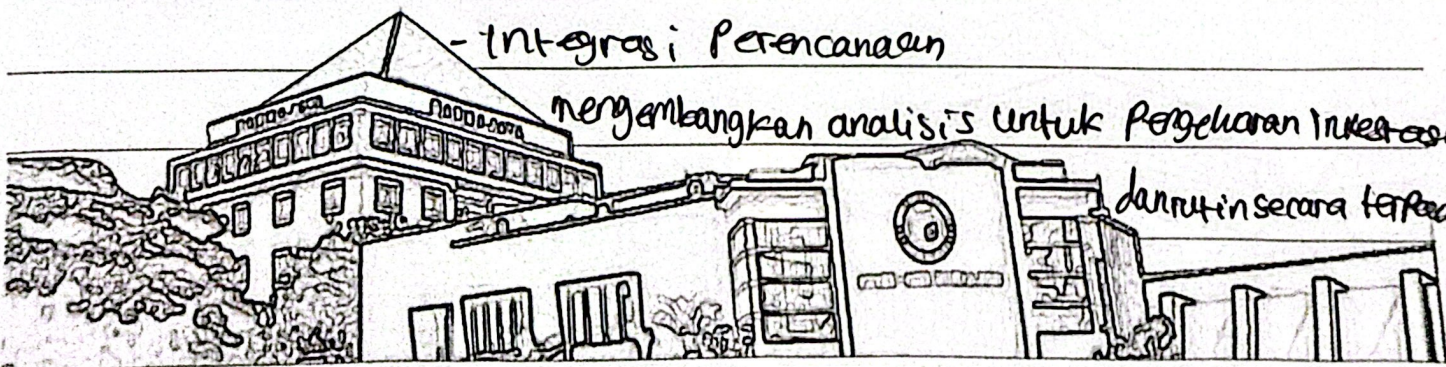 - Integrasi Perencanaan
mengembangkan analisis untuk Pengeluaran Investasi
dan rutin secara terpad